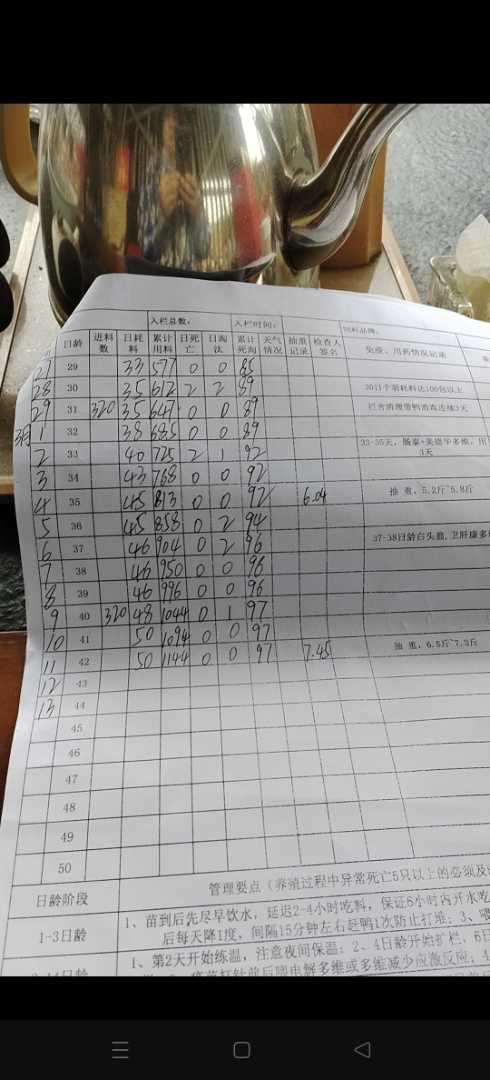 入栏总数： 入栏时间： 饲料品牌：
日龄 进料数 日耗料 累计用料 日死亡 日淘汰 累计死淘 天气情况 抽重记录 检查人签名 免疫、用药情况记录
27 29 33 577 0 0 85
28 30 35 612 2 2 89
29 31 320 35 647 0 0 89
3月1 32 38 685 0 0 89
2 33 40 725 2 1 92
3 34 43 768 0 0 92
4 35 45 813 0 0 92 6.04 抽重，5.2斤~5.8斤
5 36 45 858 0 2 94
6 37 46 904 0 2 96
7 38 46 950 0 0 96
8 39 46 996 0 0 96
9 40 320 48 1044 0 1 97
10 41 50 1094 0 0 97
11 42 50 1144 0 0 97 7.45 抽重，6.5斤~7.3斤
12 43
13 44
45
46
47
48
49
50
日龄阶段 管理要点（养殖过程中异常死亡5只以上的必须及
1-3日龄 1、苗到后先尽早饮水，延迟2-4小时吃料，保证6小时内开水吃
后每天降1度，间隔15分钟左右赶鸭1次防止打堆；3、
1、第2天开始练温，注意夜间保温；2、4日龄开始扩栏，6日